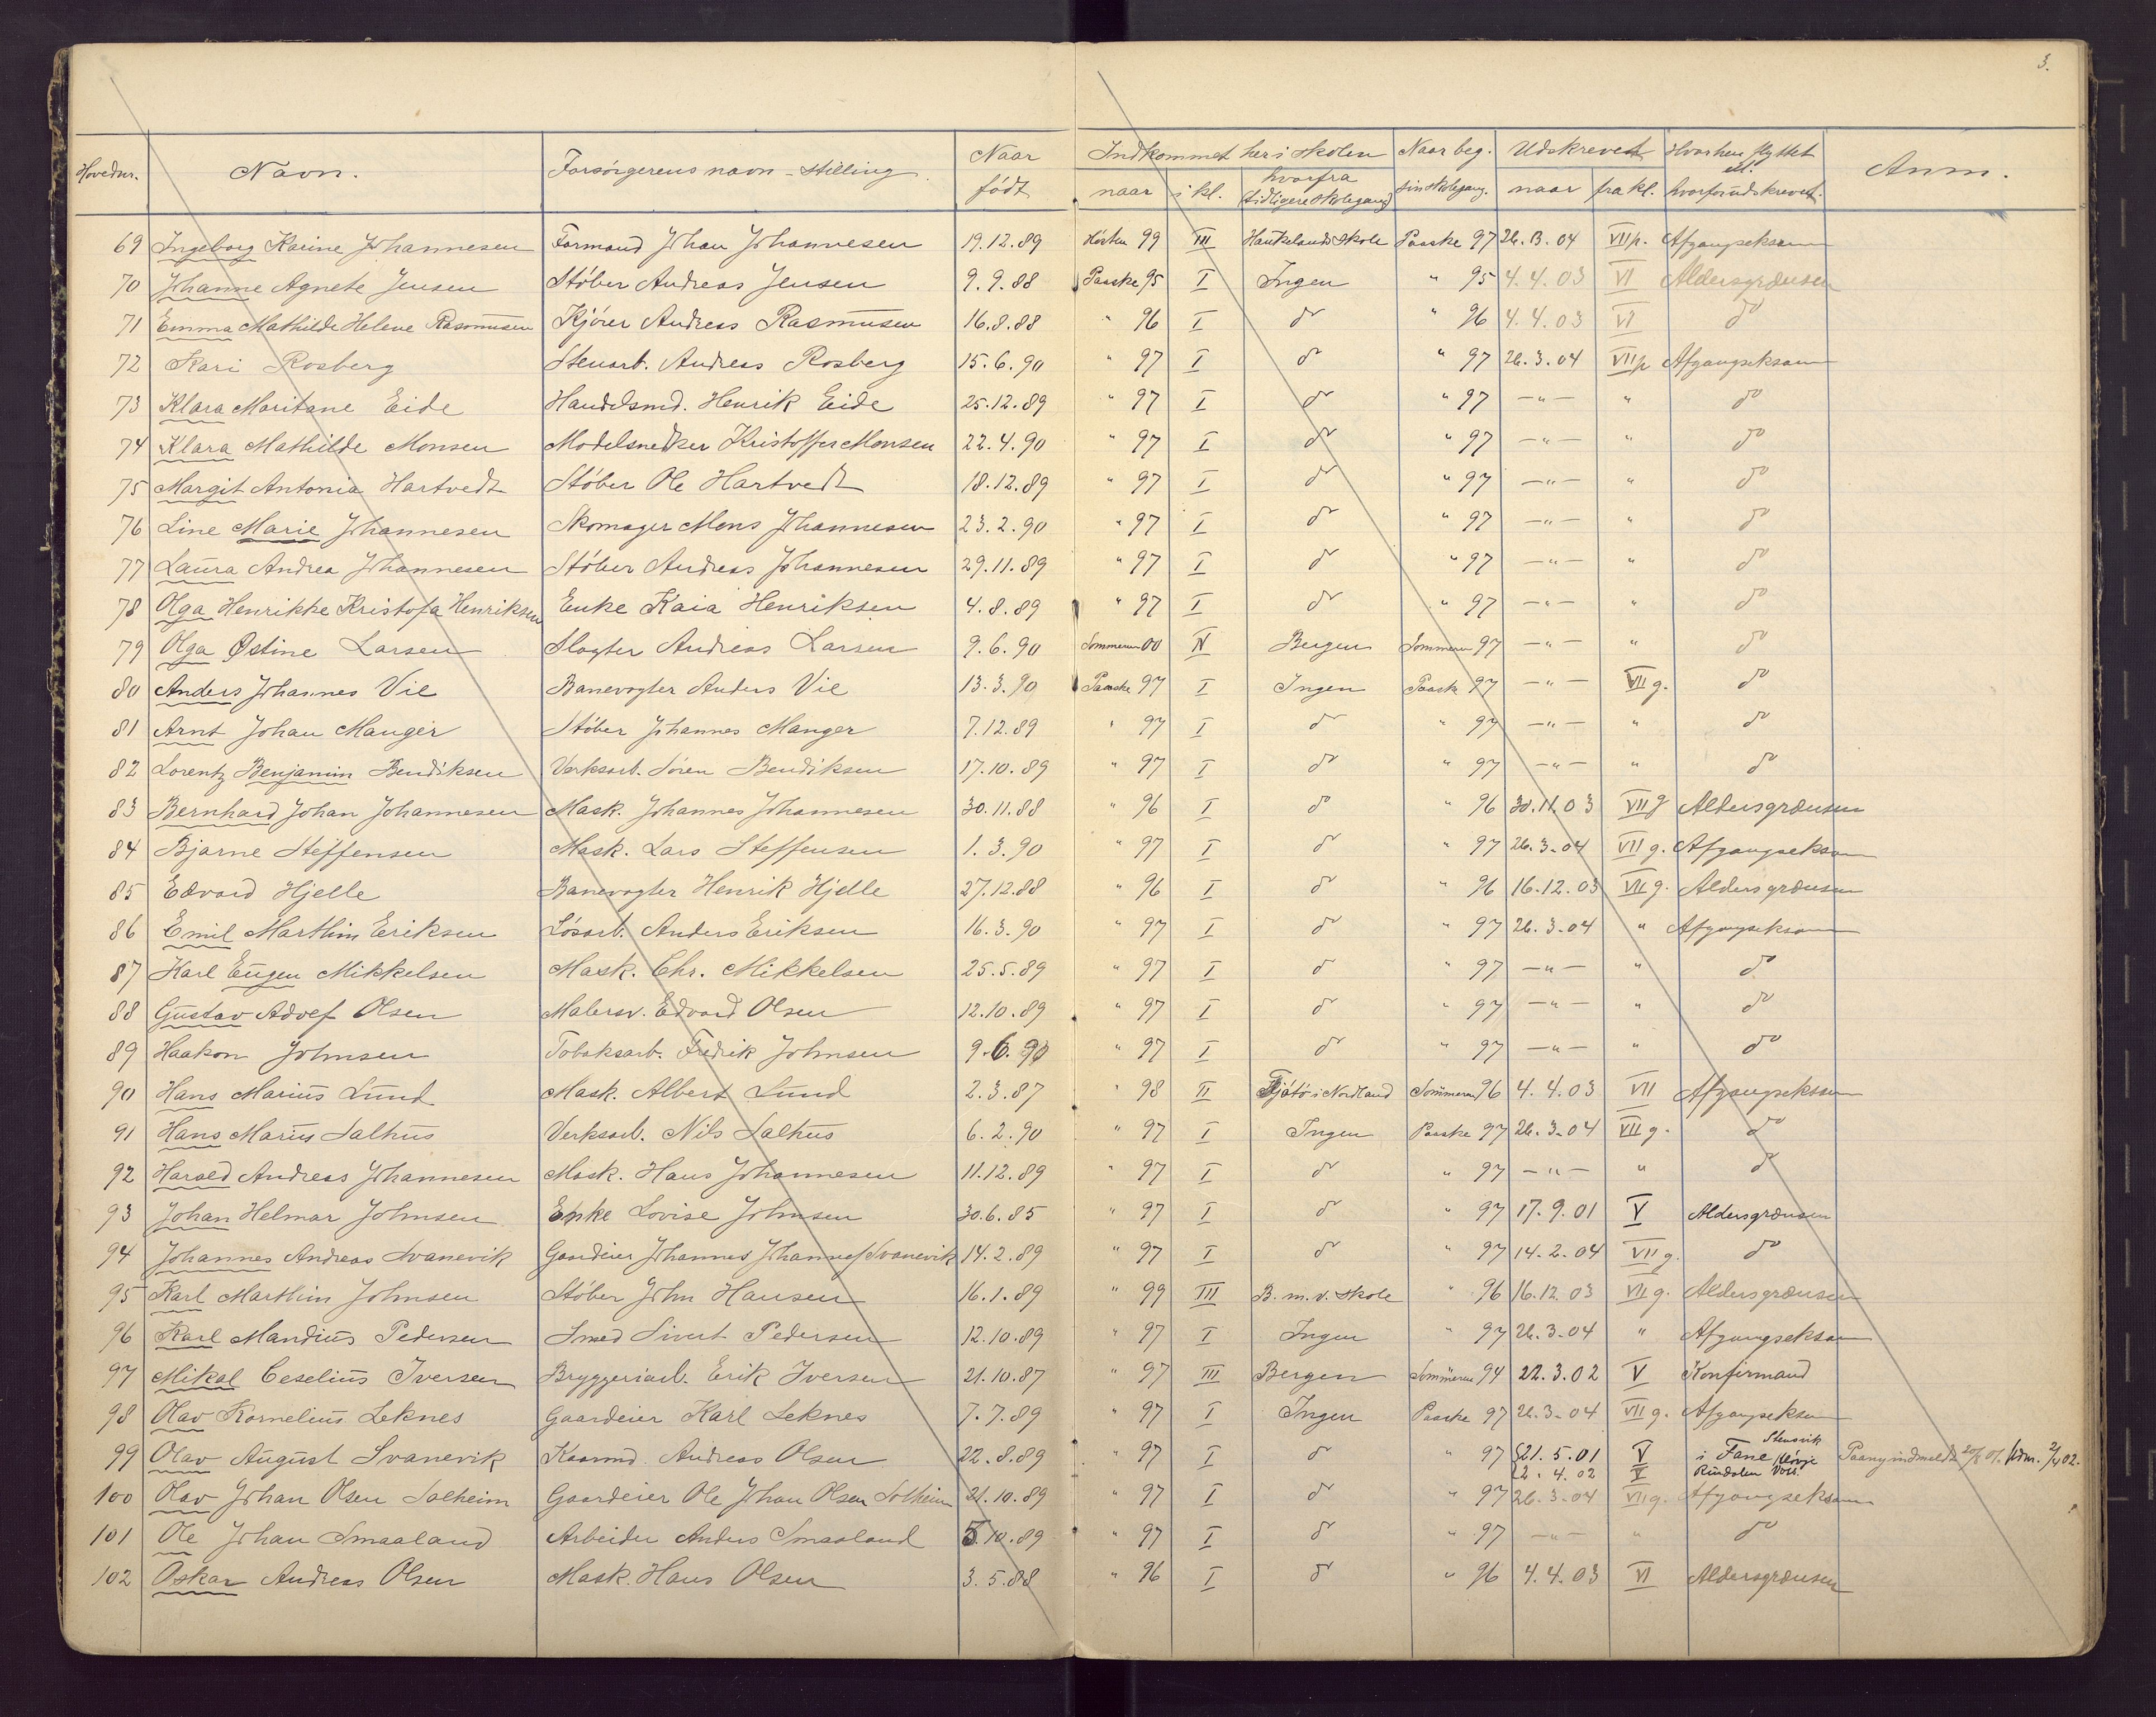 3.
Hovednr. Navn. Forsørgerens navn - stilling. Naar født Indkommet her i skolen naar i kl. hvorfra (tidligere skolegang) Naar beg. sin skolegang. Udskrevet naar fra kl. Hvorhen flyttet el. hvorfor udskrevet. Anm.
69 Ingeborg Karine Johannesen Formand Johan Johannesen 19.12.89 Høsten 99 III Haukelands skole Paaske 97 26.3.04 VII p. Afgangseksam
70 Johanne Agnete Jensen Støber Andreas Jensen 9.9.88 Paaske 95 I Ingen " 95 4.4.03 VI Aldersgrænsen
71 Emma Mathilde Helene Rasmussen Kjører Andreas Rasmussen 16.8.88 " 96 I do " 96 4.4.03 VI do
72 Kari Rosberg Stenarb. Andreas Rosberg 15.6.90 " 97 I do " 97 26.3.04 VII p Afgangseksam
73 Klara Maritane Eide Handelsmd. Henrik Eide 25.12.89 " 97 I do " 97 -"- " do
74 Klara Mathilde Monsen Modelsnedker Kristoffer Monsen 22.4.90 " 97 I do " 97 -"- " do
75 Margit Antonia Hartvedt Støber Ole Hartvedt 18.12.89 " 97 I do " 97 -"- " do
76 Line Marie Johannesen Skomager Mons Johannesen 23.2.90 " 97 I do " 97 -"- " do
77 Laura Andrea Johannesen Støber Andreas Johannesen 29.11.89 " 97 I do " 97 -"- " do
78 Olga Henrikke Kristofa Henriksen Enke Kaia Henriksen 4.8.89 " 97 I do " 97 -"- " do
79 Olga Østine Larsen Slagter Andreas Larsen 9.6.90 Sommeren 00 IV Bergen Sommeren 97 -"- " do
80 Anders Johannes Vie Banevogter Anders Vie 13.3.90 Paaske 97 I Ingen Paask 97 -"- VII g. do
81 Arnt Johan Manger Støber Johannes Manger 7.12.89 " 97 I do " 97 -"- " do
82 Lorentz Benjamin Bendiksen Verksarb. Søren Bendiksen 17.10.89 " 97 I do " 97 -"- " do
83 Bernhard Johan Johannesen Mask. Johannes Johannesen 30.11.88 " 96 I do " 96 30.11.03 VII g Aldersgrænsen
84 Bjarne Steffensen Mask. Lars Steffensen 1.3.90 " 97 I do " 97 26.3.04 VII g. Afgangseksam
85 Edvard Hjelle Banevogter Henrik Hjelle 27.12.88 " 96 I do " 96 16.12.03 VII g. Aldersgrænsen
86 Emil Marthin Eriksen Løsarb. Anders Eriksen 16.3.90 " 97 I do " 97 26.3.04 " Afgangseksam
87 Karl Eugen Mikkelsen Mask. Chr. Mikkelsen 25.5.89 " 97 I do " 97 -"- " do
88 Gustav Adolf Olsen Malersv. Edvard Olsen 12.10.89 " 97 I do " 97 -"- " do
89 Haakon Johnsen Tobaksarb. Fredrik Johnsen 9.6.90 " 97 I do " 97 -"- " do
90 Hans Marius Lund Mask. Albert Lund 2.3.87 " 98 II Tjøtø i Nordland Sommeren 96 4.4.03 VII Afgangseksam
91 Hans Marius Salhus Verksarb. Nils Salhus 6.2.90 " 97 I Ingen Paaske 97 26.3.04 VII g. do
92 Harald Andreas Johannesen Mask. Hans Johannesen 11.12.89 " 97 I do " 97 -"- " do
93 Johan Helmar Johnsen Enke Lovise Johnsen 30.6.85 " 97 I do " 97 17.9.01 V Aldersgrænsen
94 Johannes Andreas Svanevik Gaardeier Johannes Johannes Svanevik 14.2.89 " 97 I do " 97 14.2.04 VII g. do
95 Karl Marthin Johnsen Støber John Hansen 16.1.89 " 99 III B. m. v. skole " 96 16.12.03 VII g. Aldersgrænsen
96 Karl Mandius Pedersen Smed Sivert Pedersen 12.10.89 " 97 I Ingen " 97 26.3.04 " Afgangseksam
97 Mikal Ceselius Iversen Bryggeriarb. Erik Iversen 21.10.87 " 97 III Bergen Sommeren 94 22.3.02 V Konfirmand
98 Olav Kornelius Leknes Gaardeier Karl Leknes 7.7.89 " 97 I Ingen Paaske 97 26.3.04 VII g. Afgangseksam
99 Olav August Svanevik Kaarmd. Andreas Olsen 22.8.89 " 97 I do " 97 21.5.01 V i Fane Stensvik
2.4.02 V Rundalen Voss. Paany indmeldt 20/8 01. Udm. 2/4 02.
100 Olav Johan Olsen Solheim Gaardeier Ole Johan Olsen Solheim 21.10.89 " 97 I do " 97 26.3.04 VII g. Afgangseksam
101 Ole Johan Smaaland Arbeider Anders Smaaland 5.10.89 " 97 I do " 97 -"- " do
102 Oskar Andreas Olsen Mask. Hans Olsen 3.5.88 " 96 I do " 96 4.4.03 VI Aldersgrænsen